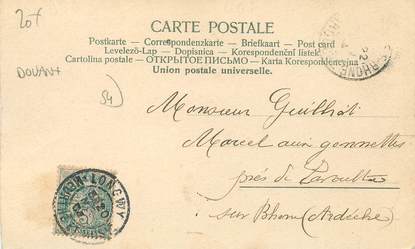 20f
CARTE POSTALE
Postkarte — Correspondenzkarte — Briefkaart — Post card
Levelező-Lap — Dopisnica — Korespondenční lístek
Cartolina postale — ОТКРЫТОЕ ПИСЬМО — Karta Korespondencyjna
Union postale universelle.
DOUAUX
54
Monsieur
Marcel aux
près de
sur Rhone (Ardèche)
LONGWY